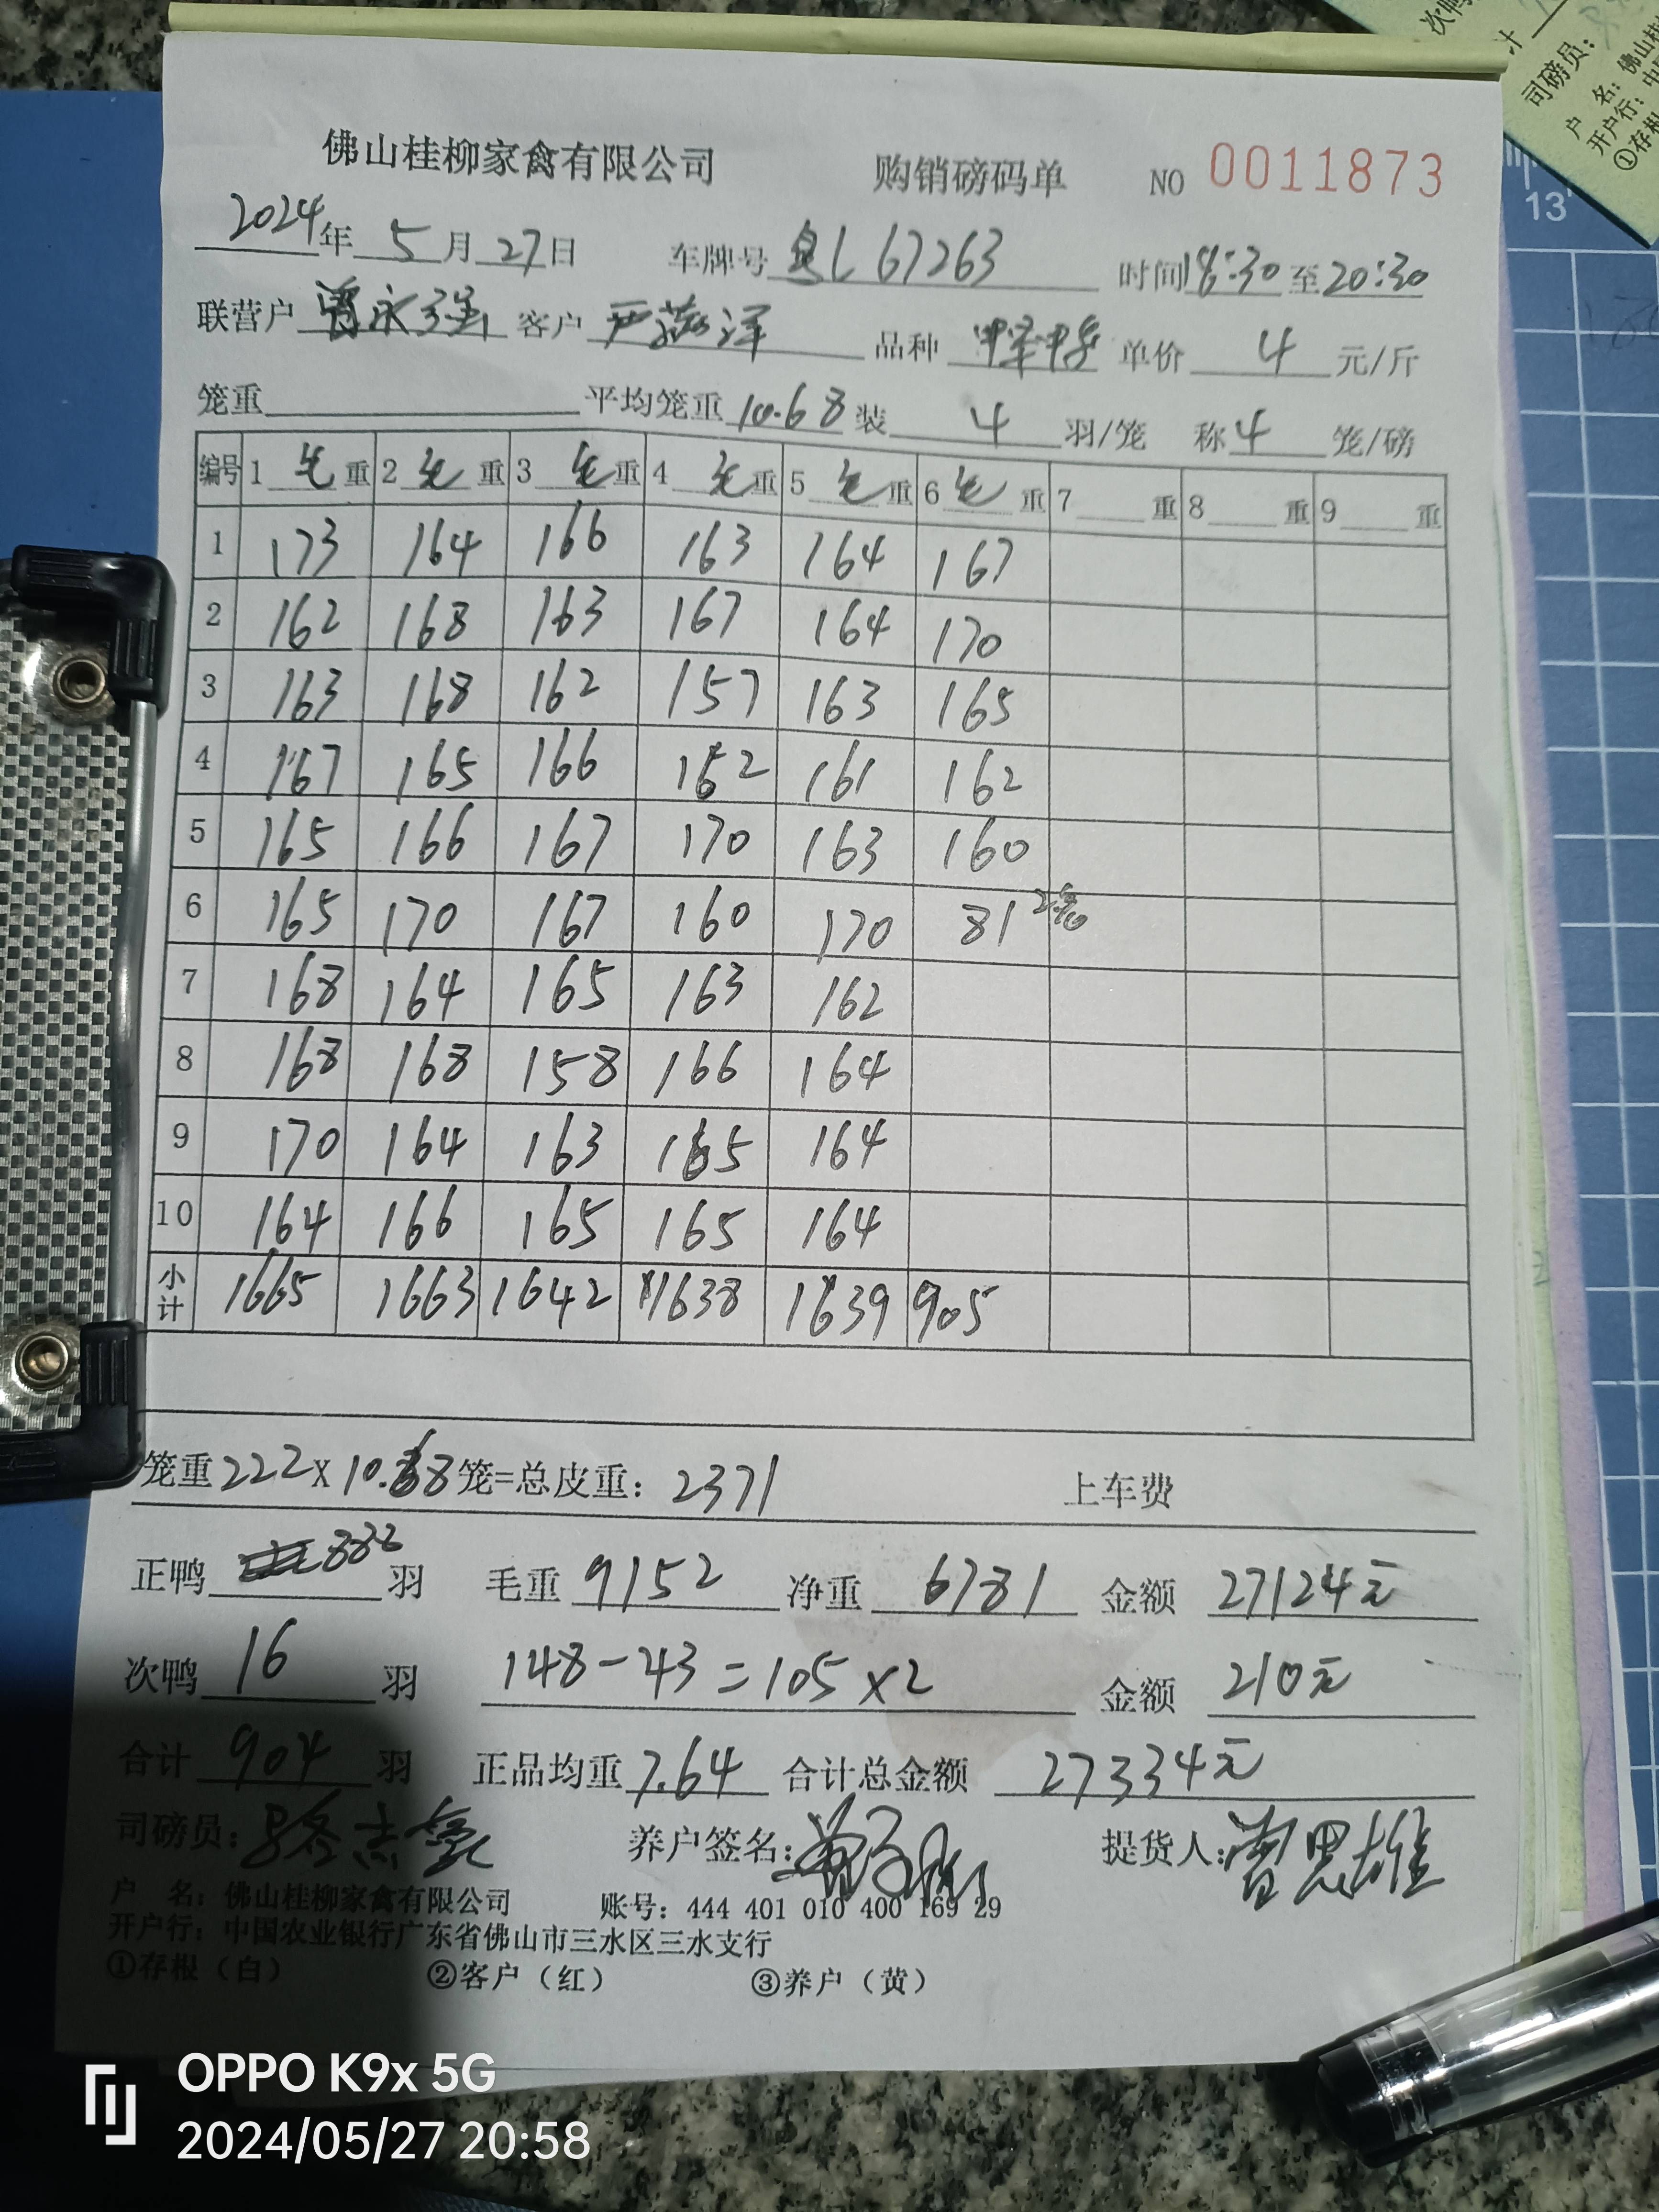 佛山桂柳家禽有限公司 购销磅码单 NO 0011873
2024年 5 月 27 日 车牌号 粤L 67263 时间 18:30 至 20:30
联营户 曾永强 客户 严 泽 品种 单价 4 元/斤
笼重 平均笼重 10.68 装 4 羽/笼 称 4 笼/磅
编号 1 毛 重 2 毛 重 3 毛 重 4 毛 重 5 毛 重 6 毛 重 7 重 8 重 9 重
1 173 164 166 163 164 167
2 162 168 163 167 164 170
3 163 168 162 157 163 165
4 167 165 166 162 161 162
5 165 166 167 170 163 160
6 165 170 167 160 170 81 2笼
7 168 164 165 163 162
8 168 168 158 166 164
9 170 164 163 165 164
10 164 166 165 165 164
小计 1665 1663 1642 1638 1639 905
笼重 222 X 10.68 笼=总皮重: 2371 上车费
正鸭 888 羽 毛重 9152 净重 6781 金额 27124元
次鸭 16 羽 148-43=105×2 金额 210元
合计 904 羽 正品均重 7.64 合计总金额 27334元
司磅员: 养户签名: 提货人: 曾思雄
户 名: 佛山桂柳家禽有限公司 账号: 444 401 010 400 169 29
开户行: 中国农业银行广东省佛山市三水区三水支行
①存根(白) ②客户(红) ③养户(黄)
司磅员:
户 名: 佛山桂
开户行: 中
①存根
13
OPPO K9x 5G
2024/05/27 20:58